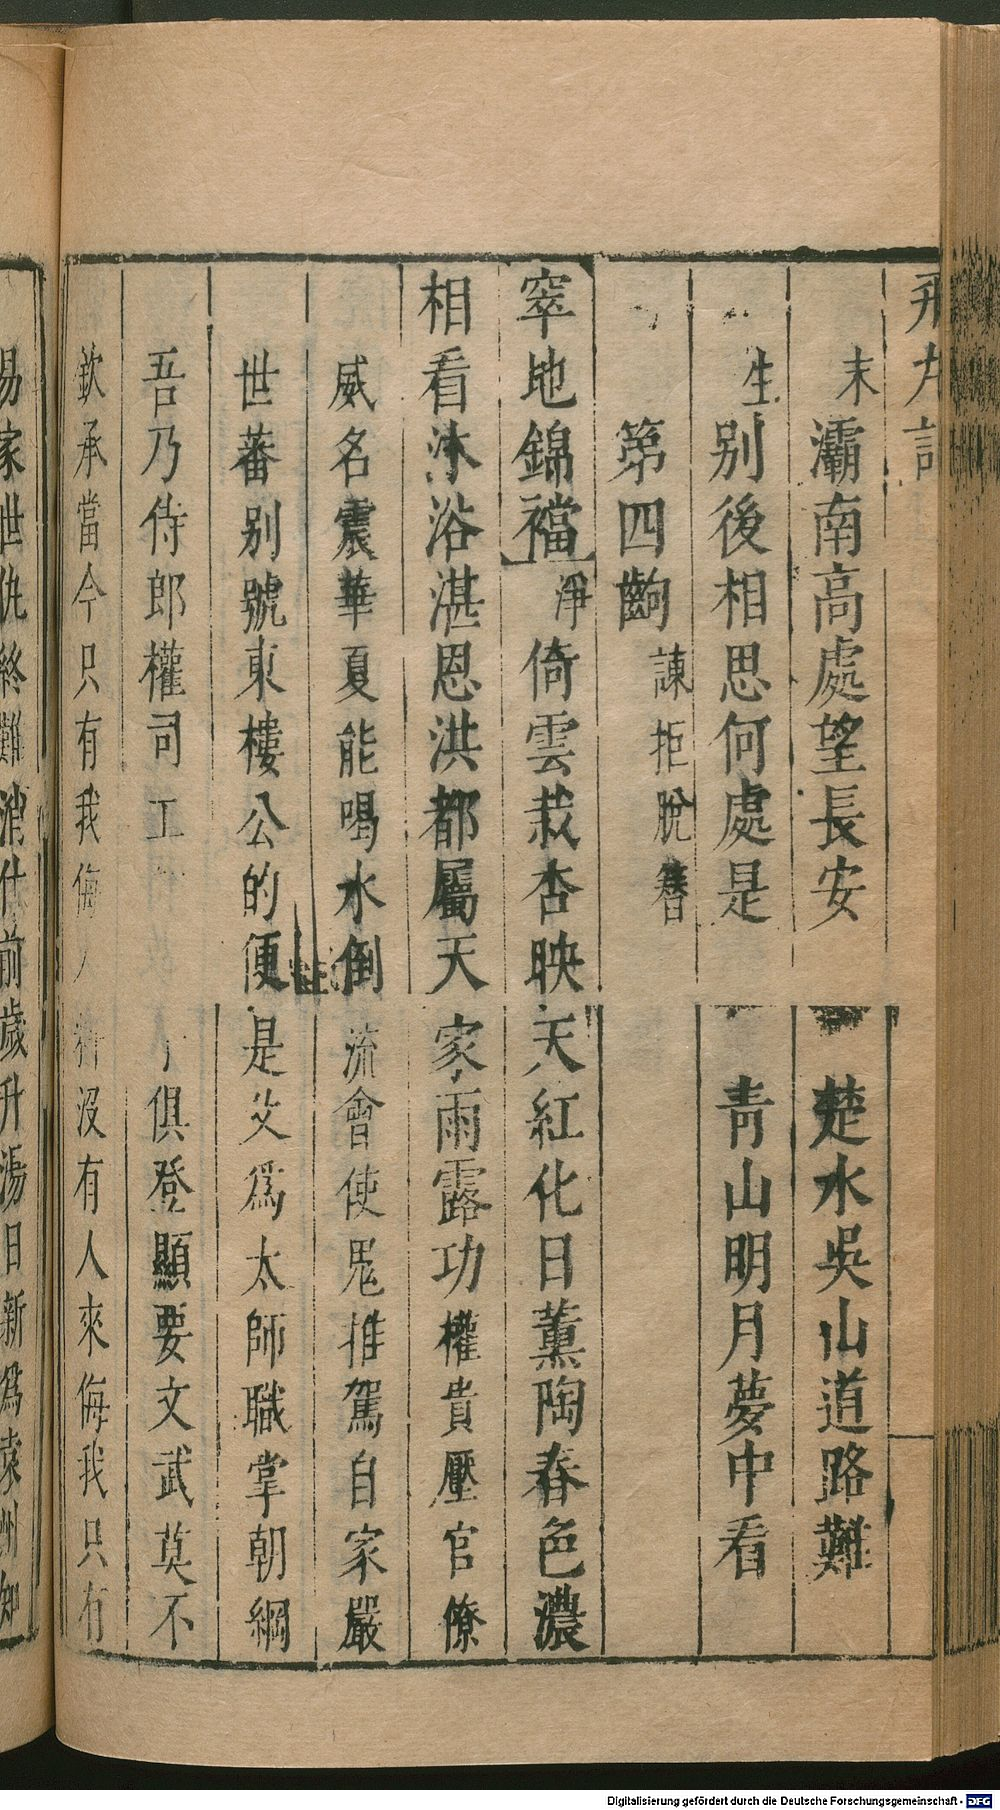 飛丸記
末 灞南高處望長安 楚水吳山道路難
生 别後相思何處是 青山明月夢中看
第四齣 諫拒脫簪
窣地錦襠 淨 倚雲栽杏映天紅化日薰陶春色濃
相看沐浴湛恩洪都屬天家雨露功權貴壓官僚
威名震華夏能喝水倒流會使鬼推駕自家嚴
世蕃别號東樓公的便是父爲太師職掌朝綱
吾乃侍郎權司工 俱登顯要文武莫不
欽承當今只有我侮人 没有人來侮我只有
易家世仇終難消仕前歲升湯日新爲袁州知
Digitalisierung gefördert durch die Deutsche Forschungsgemeinschaft - DFG